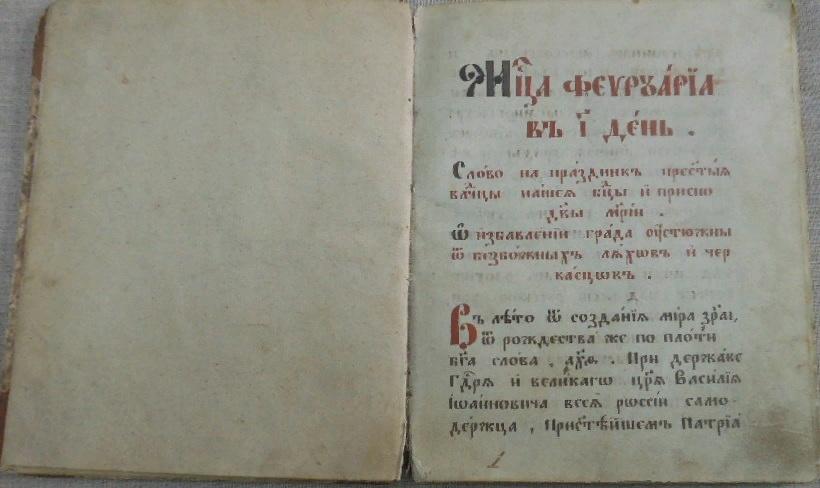 Мц҃а феꙋрꙋа́рїа
въ і҃ де́нь .
Сло́во на пра́здникъ прест҃ы́ѧ
влⷣчцы на́шеѧ бцⷣы и҆ присно
дв҃ы мр҃і́и .
Ѡ҆ и҆збавле́нїи гра́да оу҆стю́жны
ѿ безбо́жныхъ лѧ́хѡвъ и҆ чер
ка́сцѡвъ .
Въ лѣ́то ѿ созда́нїѧ мі́ра зр҃аі,
ѿ рождества̀ же по пло́ти
бг҃а сло́ва , а҂х҃ѳ . При держа́ве
Гдⷭ҇рѧ и҆ вели́кагѡ цр҃ѧ̀ Васи́лїѧ
Іѡа́нновича всеѧ̀ рѡссі́и само-
де́ржца , Прист҃ѣ́йшемъ Патрїа́
1